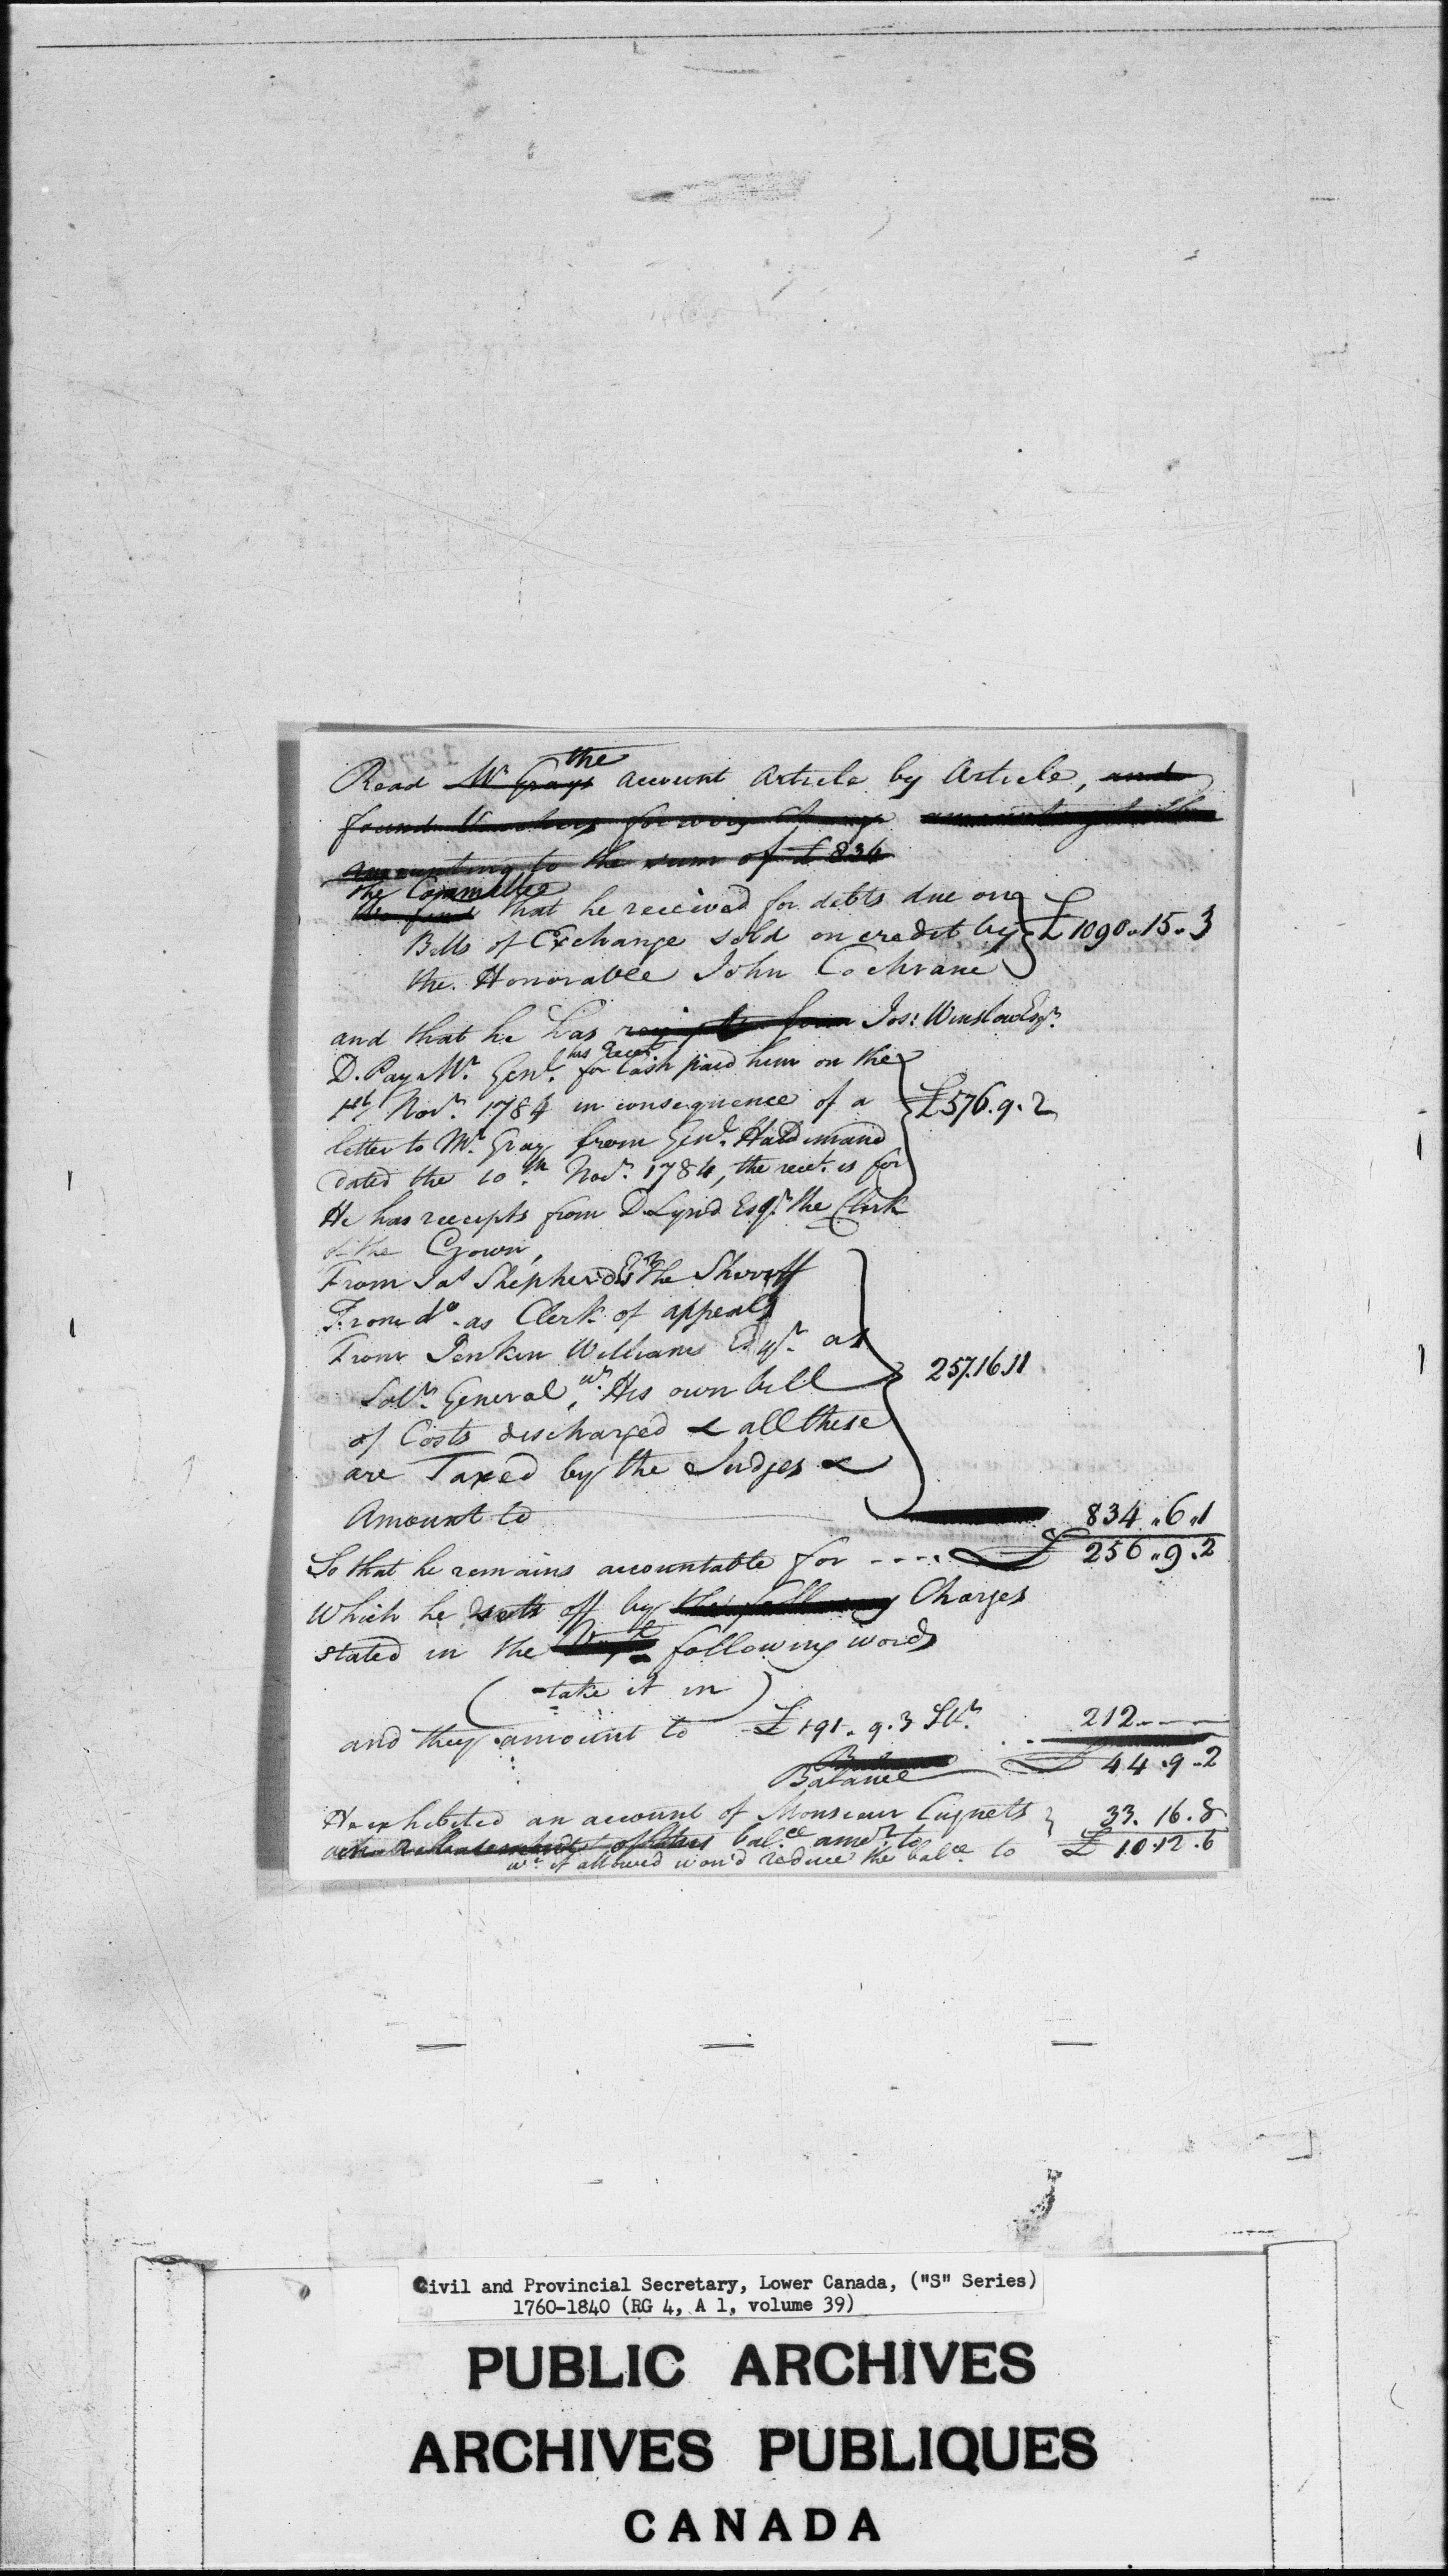 the
Read Mr Grays account Article by Article, and
found Vouchers for every Charge amounting to the
amounting to the sum of £ 834
the Committee
that he received for debts due on
Bills of Exchange sold on credit by £ 1090.15.3
the Honorable John Cochrane
and that he has receipts from Jos: Winslow Esqr.
his Receit
D. Pay Mr. Genl. for Cash paid him on the
1st Novr. 1784 in consequence of a £576.9.2
letter to Mr. Gray from Genl. Haldimand
dated the 10th Novr. 1784, the recet. is for
He has receipts from D Lynd Esqr. the Clerk
of the Crown,
From Jas Shepherd Esqr the Sheriff
From do. as Clerk of appeals
From Jenkin Williams Esqr. as
Solr. General, wh. His own bill 257.16.11
of Costs discharged & all these
are Taxed by the Judges &
Amount to 834.6.1
So that he remains accountable for ---- £ 256.9.2
Which he setts off by the following Charges
stated in the following words
(take it in)
and they amount to £191.9.3 Stg. 212.--
Balance £ 44.9.2
He exhibited an account of Monsieur Cugnets 33.16.8
bal.ce amot. to
wh. if allowed wou'd reduce the balce. to £ 10.12.6
Civil and Provincial Secretary, Lower Canada, ("S" Series)
1760-1840 (RG 4, A 1, volume 39)
PUBLIC ARCHIVES
ARCHIVES PUBLIQUES
CANADA